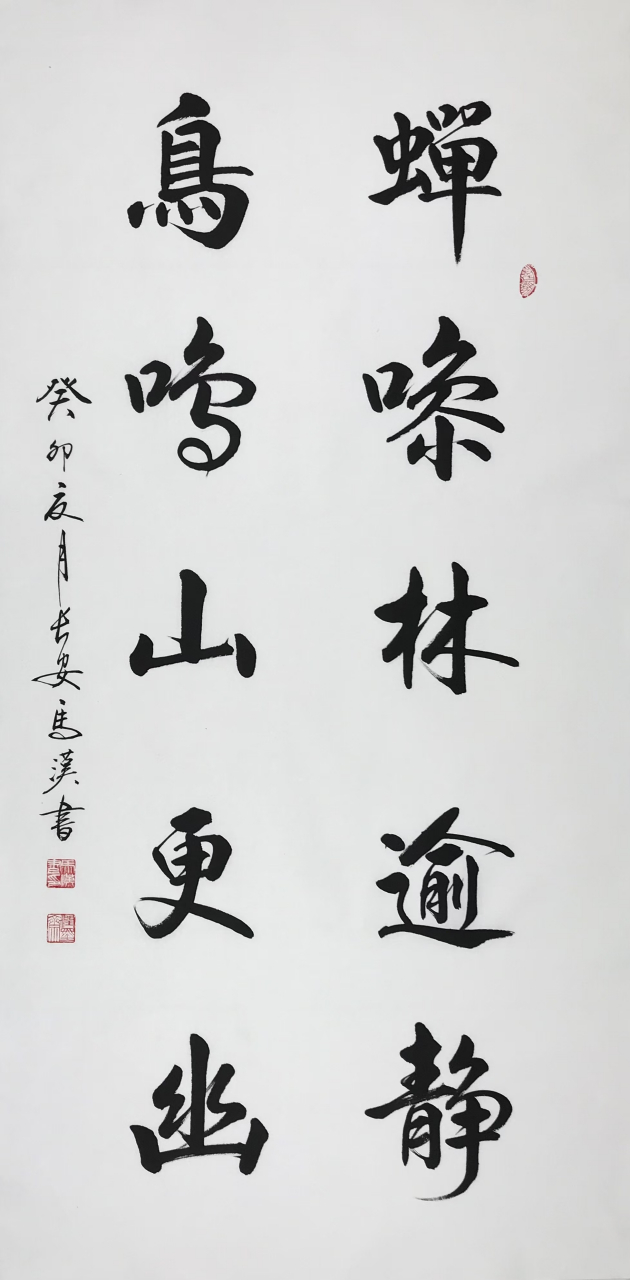 蟬噪林逾静
鳥鳴山更幽
癸卯夏月长安馬漢書